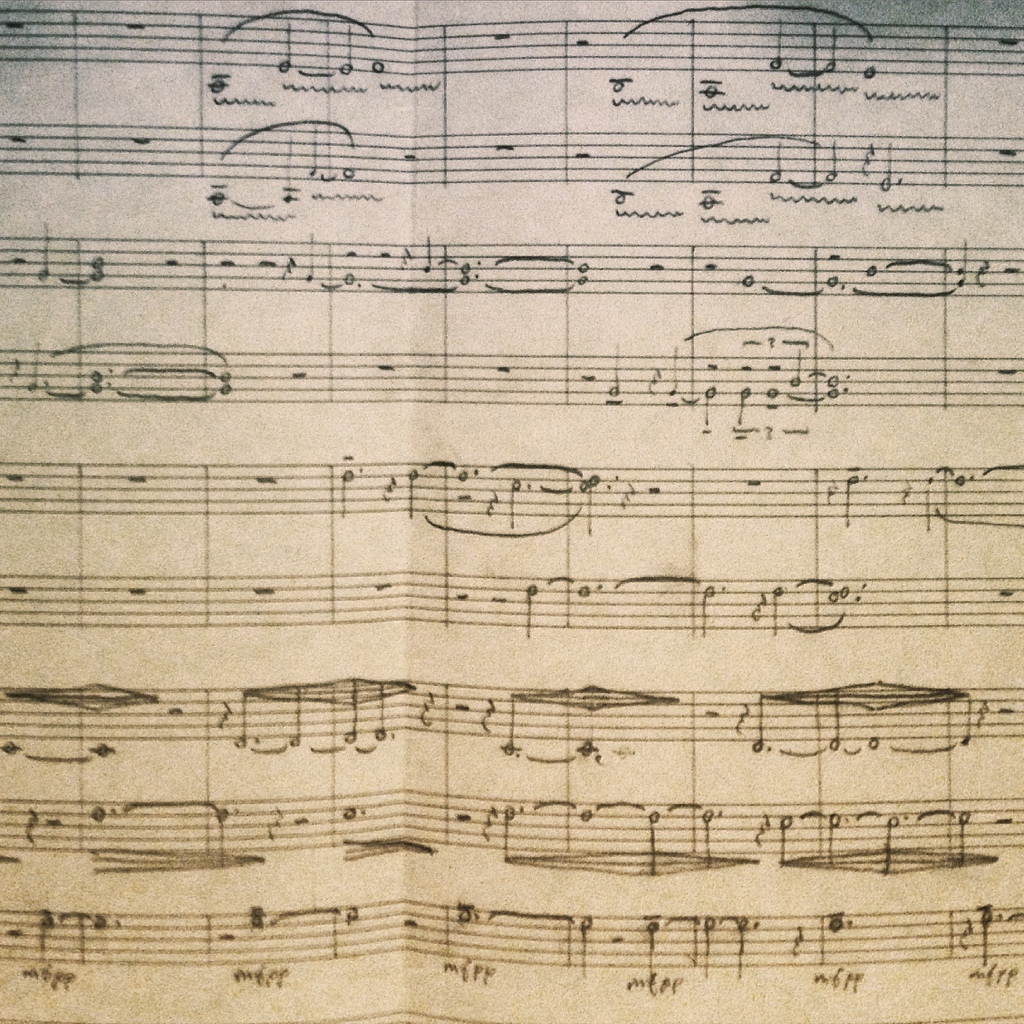 3
3
mfpp mfpp mfpp mfpp mfpp mfpp